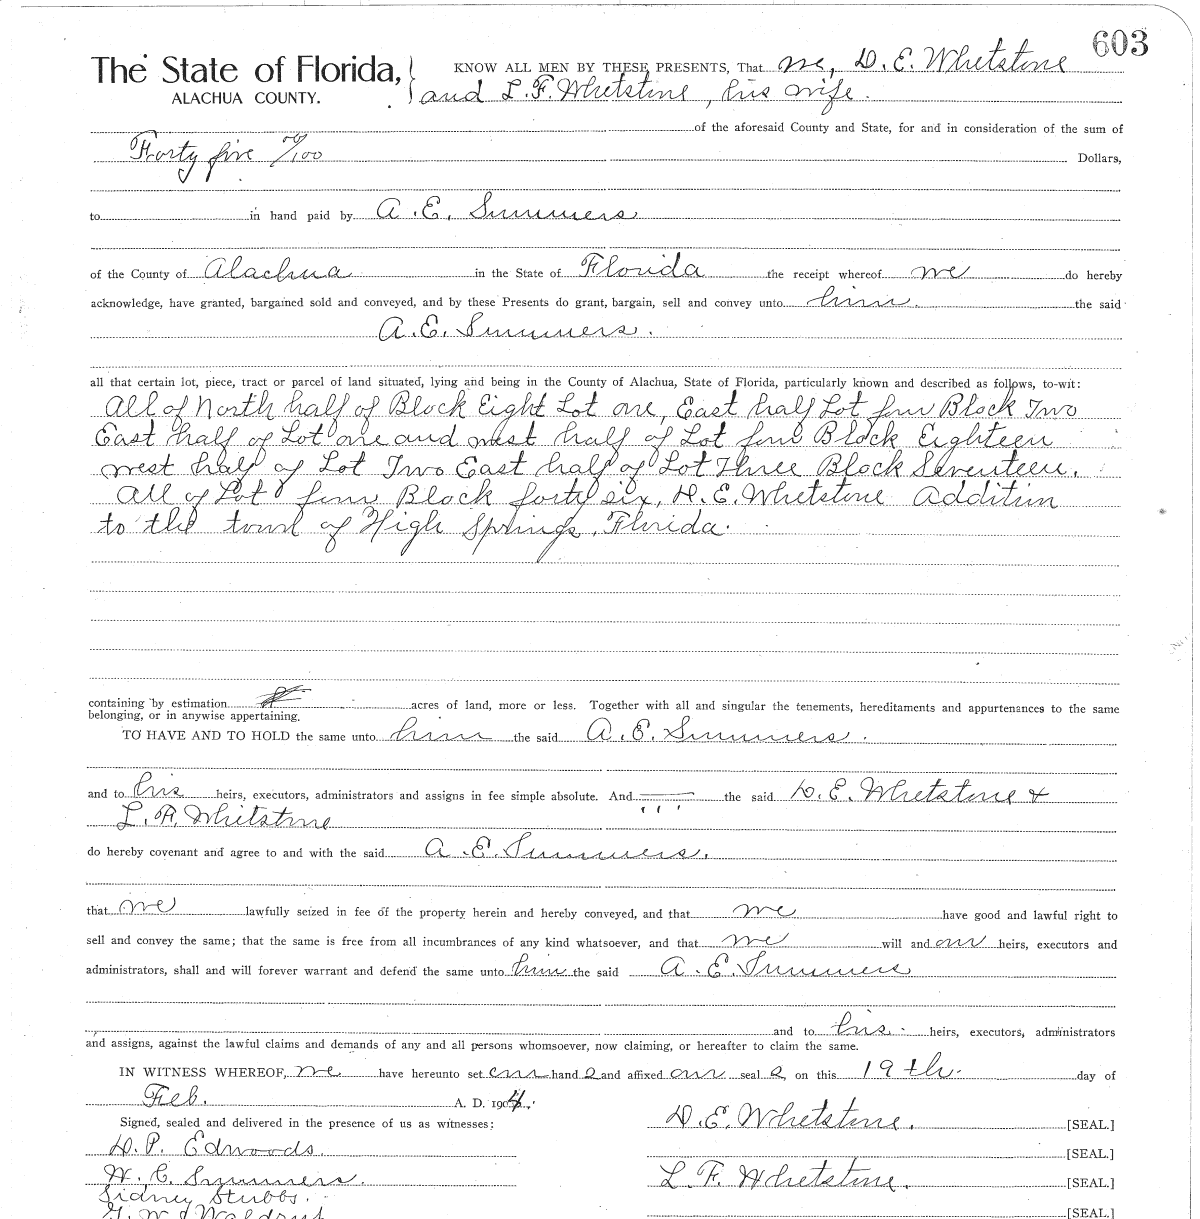 603
The State of Florida, KNOW ALL MEN BY THESE PRESENTS, That we, D. E. Whetstone
ALACHUA COUNTY. and L. F. Whetstone, his wife.
of the aforesaid County and State, for and in consideration of the sum of
Forty five /100 Dollars,
to in hand paid by A. E. Summers
of the County of Alachua in the State of Florida the receipt whereof we do hereby
acknowledge, have granted, bargained sold and conveyed, and by these Presents do grant, bargain, sell and convey unto him. the said
A. E. Summers.
all that certain lot, piece, tract or parcel of land situated, lying and being in the County of Alachua, State of Florida, particularly known and described as follows, to-wit:
All of North half of Block Eight Lot one, East half Lot four Block Two
East half of Lot one and west half of Lot four Block Eighteen
west half of Lot Two East half of Lot Three Block Seventeen.
All of Lot four Block forty six, D. E. Whetstone Addition
to the town of High Springs, Florida.
containing by estimation acres of land, more or less. Together with all and singular the tenements, hereditaments and appurtenances to the same
belonging, or in anywise appertaining.
TO HAVE AND TO HOLD the same unto him the said A. E. Summers.
and to his heirs, executors, administrators and assigns in fee simple absolute. And the said D. E. Whetstone &
L. F. Whitstone
do hereby covenant and agree to and with the said A. E. Summers.
that we lawfully seized in fee of the property herein and hereby conveyed, and that we have good and lawful right to
sell and convey the same; that the same is free from all incumbrances of any kind whatsoever, and that we will and our heirs, executors and
administrators, shall and will forever warrant and defend the same unto him the said A. E. Summers
and to his heirs, executors, administrators
and assigns, against the lawful claims and demands of any and all persons whomsoever, now claiming, or hereafter to claim the same.
IN WITNESS WHEREOF, we have hereunto set our hand s and affixed our seal s, on this 19th. day of
Feb. A. D. 1904.
Signed, sealed and delivered in the presence of us as witnesses: D. E. Whetstone. [SEAL.]
D. P. Edwoods. [SEAL.]
W. C. Summers. L. F. Whetstone. [SEAL.]
Sidney Stubbs.
[SEAL.]